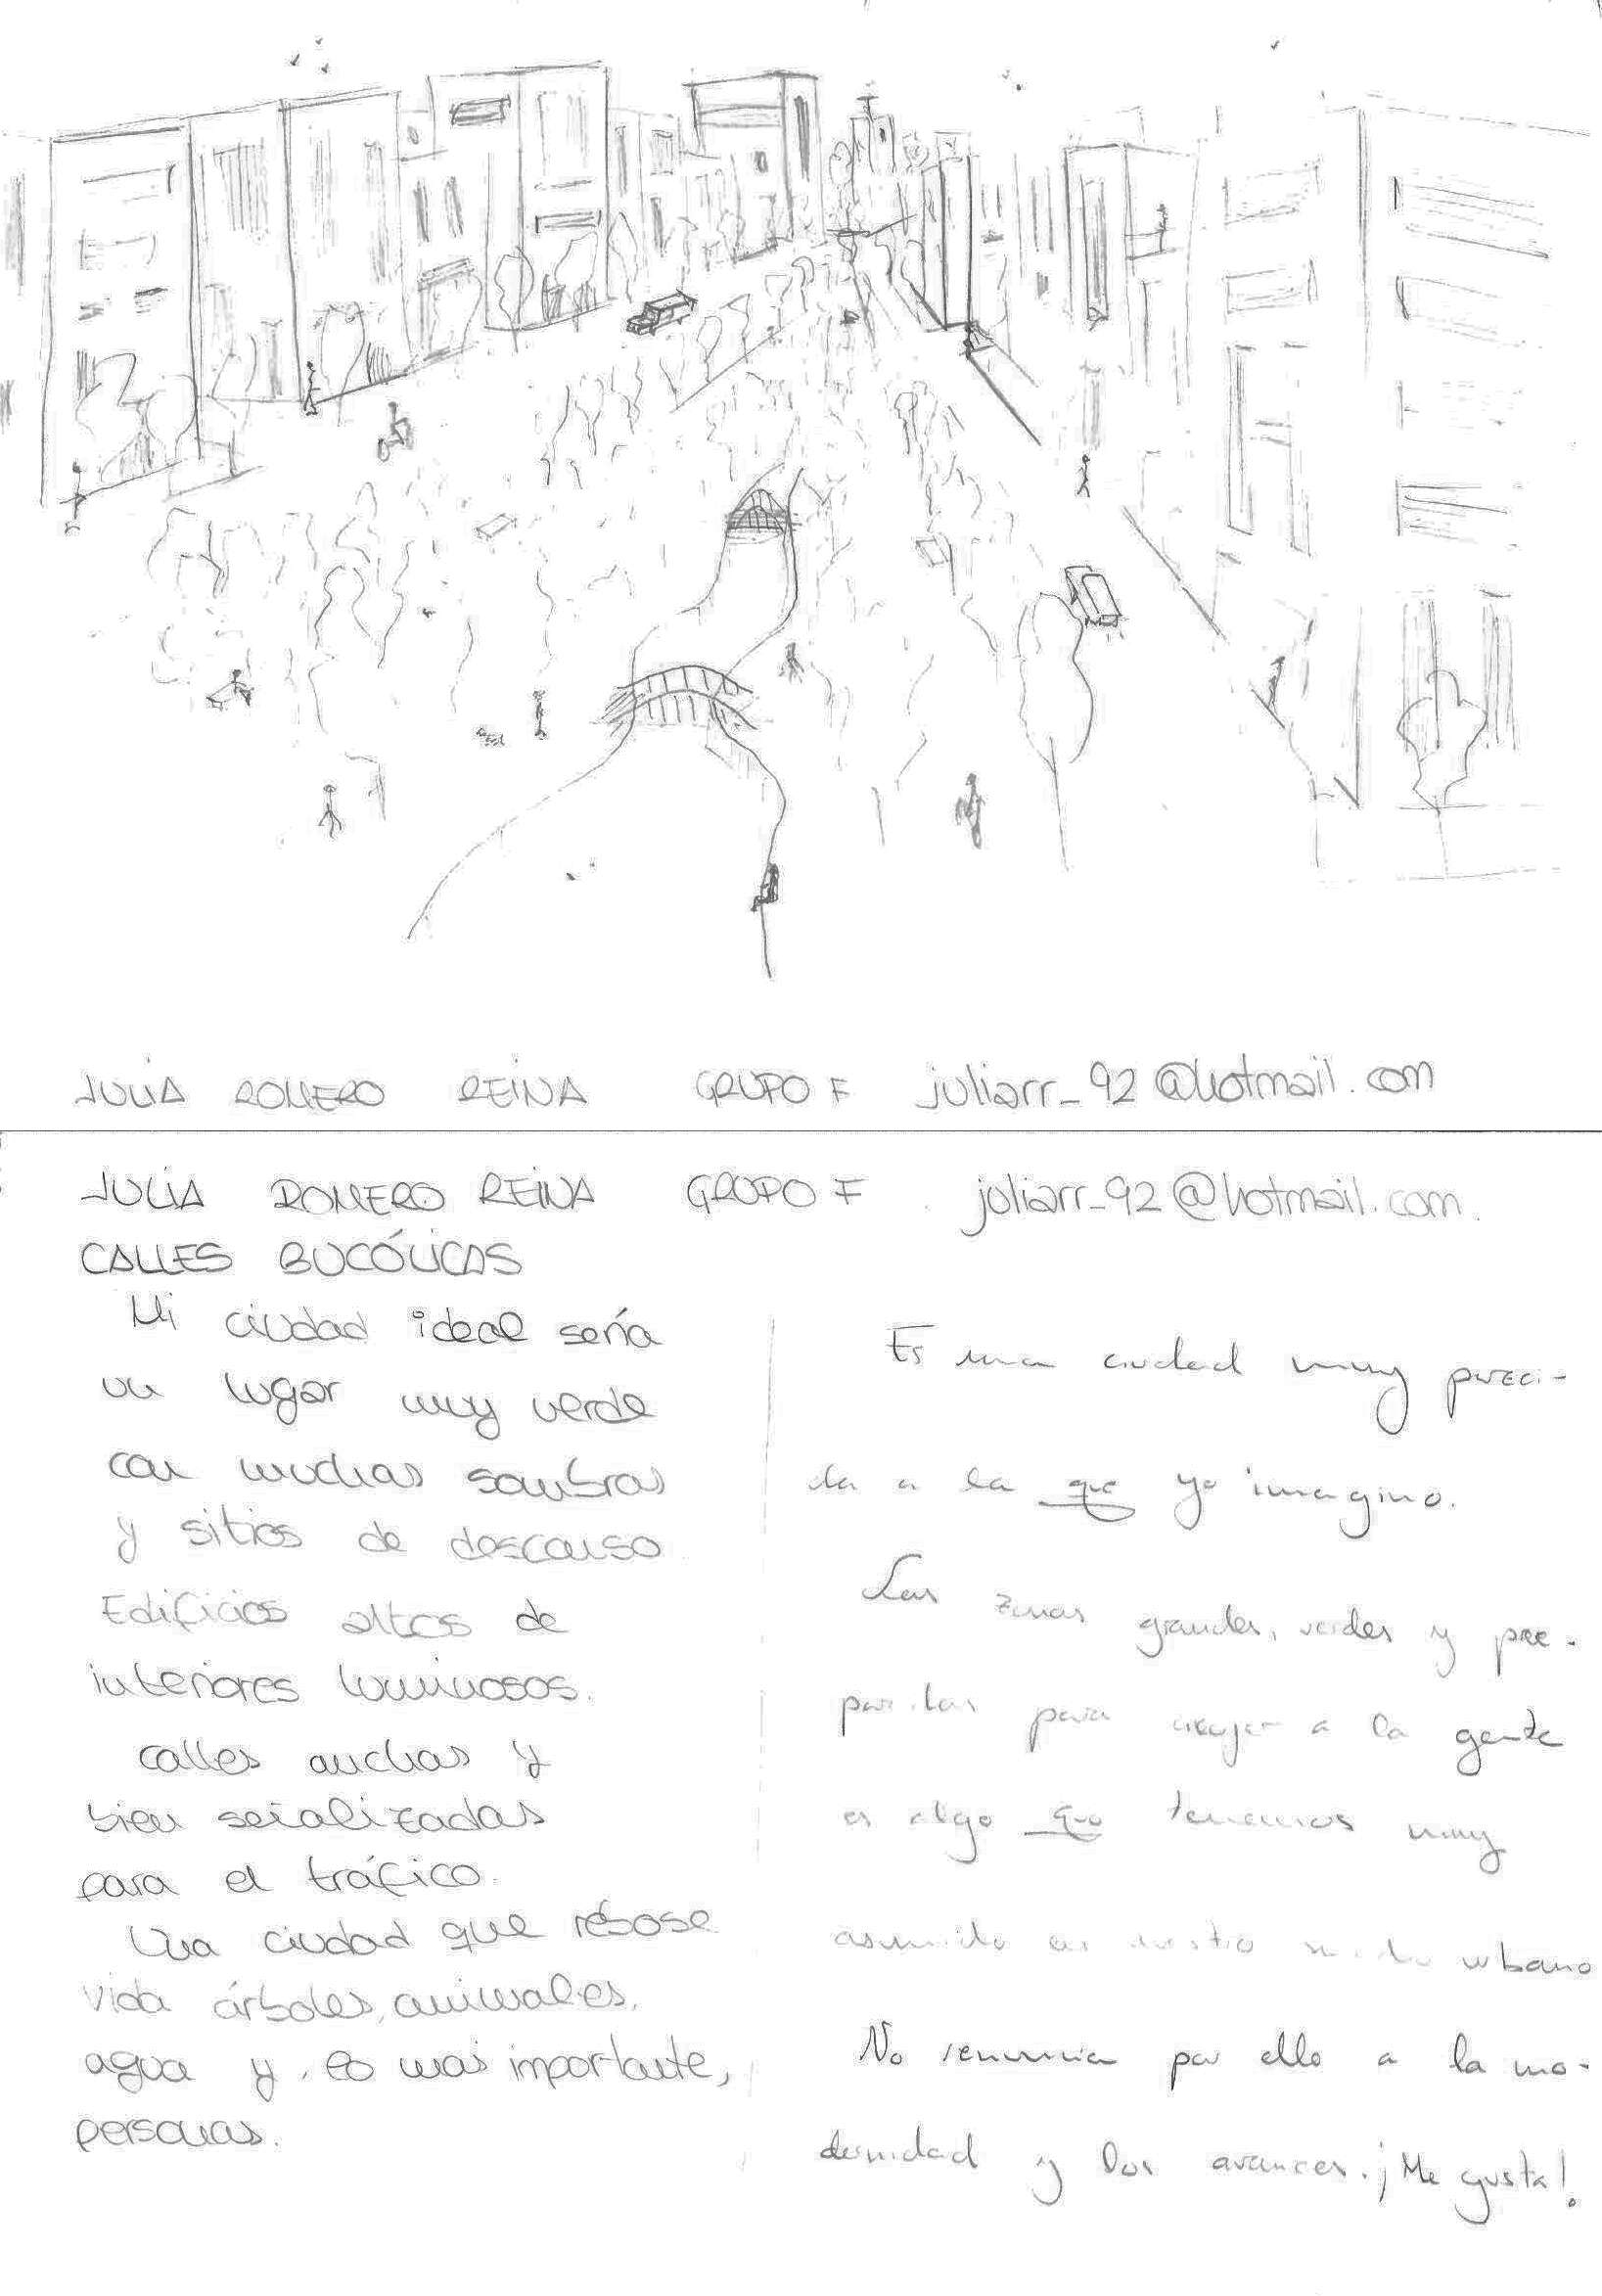 JULIA ROMERO REINA GRUPO F juliarr_92@hotmail.com
JULIA ROMERO REINA GRUPO F juliarr_92@hotmail.com.
CALLES BUCÓLICAS
Mi ciudad ideal sería
un lugar muy verde
con muchas sombras
y sitios de descanso
Edificios altos de
interiores luminosos.
calles anchas y
bien señalizadas
para el tráfico.
Una ciudad que rebose
vida árboles, animales,
agua y, lo más importante,
personas.
Es una ciudad muy pareci-
da a la que yo imagino.
Las zonas grandes, verdes y pre-
paradas para acoger a la gente
es algo que tenemos muy
asumido en nuestro urbano
No renuncia por ello a la mo-
dernidad y los avances. ¡Me gusta!